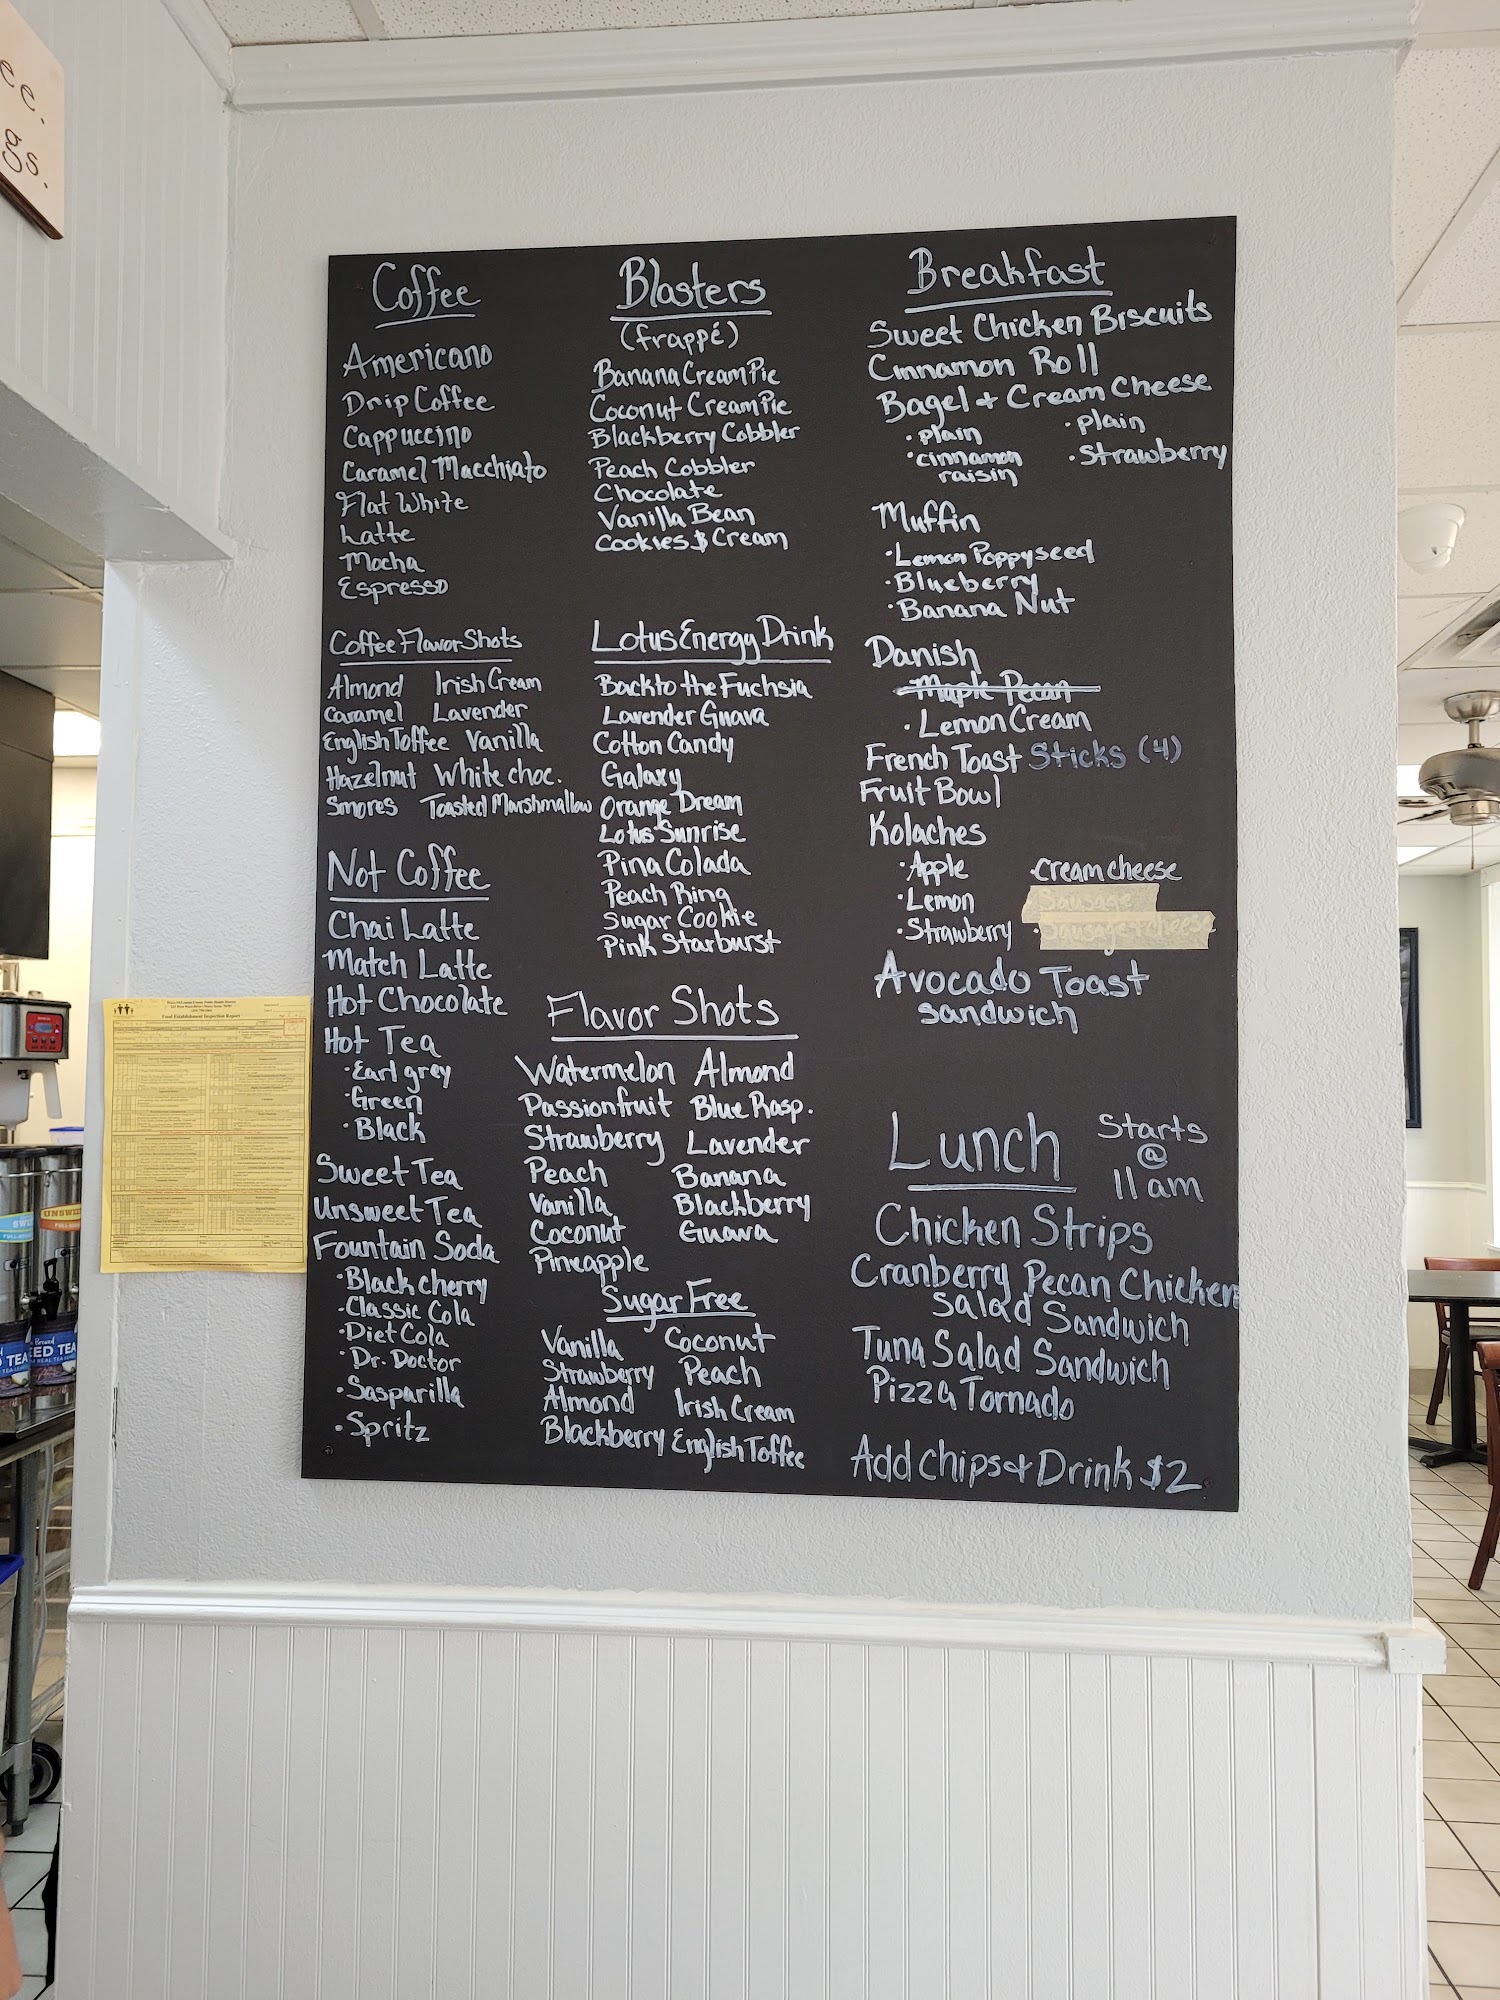 ee.
gs.
Coffee
Americano
Drip Coffee
Cappuccino
Caramel Macchiato
Flat White
Latte
Mocha
Espresso
Coffee Flavor Shots
Almond Irish Cream
Caramel Lavender
English Toffee Vanilla
Hazelnut White choc.
Smores Toasted Marshmallow
Not Coffee
Chai Latte
Match Latte
Hot Chocolate
Hot Tea
· Earl grey
· Green
· Black
Sweet Tea
Unsweet Tea
Fountain Soda
· Black cherry
· Classic Cola
· Diet Cola
· Dr. Doctor
· Sasparilla
· Spritz
Blasters
(frappé)
Banana Cream Pie
Coconut Cream Pie
Blackberry Cobbler
Peach Cobbler
Chocolate
Vanilla Bean
Cookies & Cream
Lotus Energy Drink
Back to the Fuchsia
Lavender Guava
Cotton Candy
Galaxy
Orange Dream
Lotus Sunrise
Pina Colada
Peach Ring
Sugar Cookie
Pink Starburst
Flavor Shots
Watermelon Almond
Passionfruit Blue Rasp.
Strawberry Lavender
Peach Banana
Vanilla Blackberry
Coconut Guava
Pineapple
Sugar Free
Vanilla Coconut
Strawberry Peach
Almond Irish Cream
Blackberry English Toffee
Breakfast
Sweet Chicken Biscuits
Cinnamon Roll
Bagel & Cream Cheese
· plain · plain
· cinnamon raisin · Strawberry
Muffin
· Lemon Poppyseed
· Blueberry
· Banana Nut
Danish
Maple Pecan
· Lemon Cream
French Toast Sticks (4)
Fruit Bowl
Kolaches
· Apple · cream cheese
· Lemon Sausage
· Strawberry · Sausage + cheese
Avocado Toast
sandwich
Lunch Starts
@
11 am
Chicken Strips
Cranberry Pecan Chicken
Salad Sandwich
Tuna Salad Sandwich
Pizza Tornado
Add Chips & Drink $2
Food Establishment Inspection Report
UNSWE
TEA
EED TEA